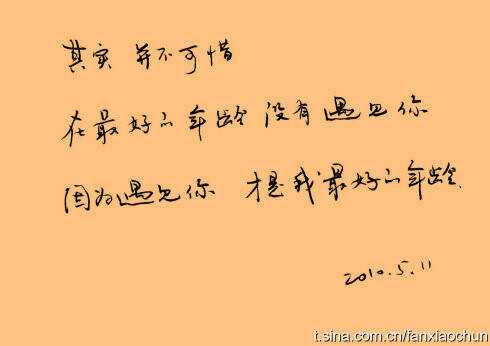 其实 并不可惜
在最好的年龄 没有遇见你
因为遇见你 才是我最好的年龄.
2010.5.11
t.sina.com.cn/fanxiaochun